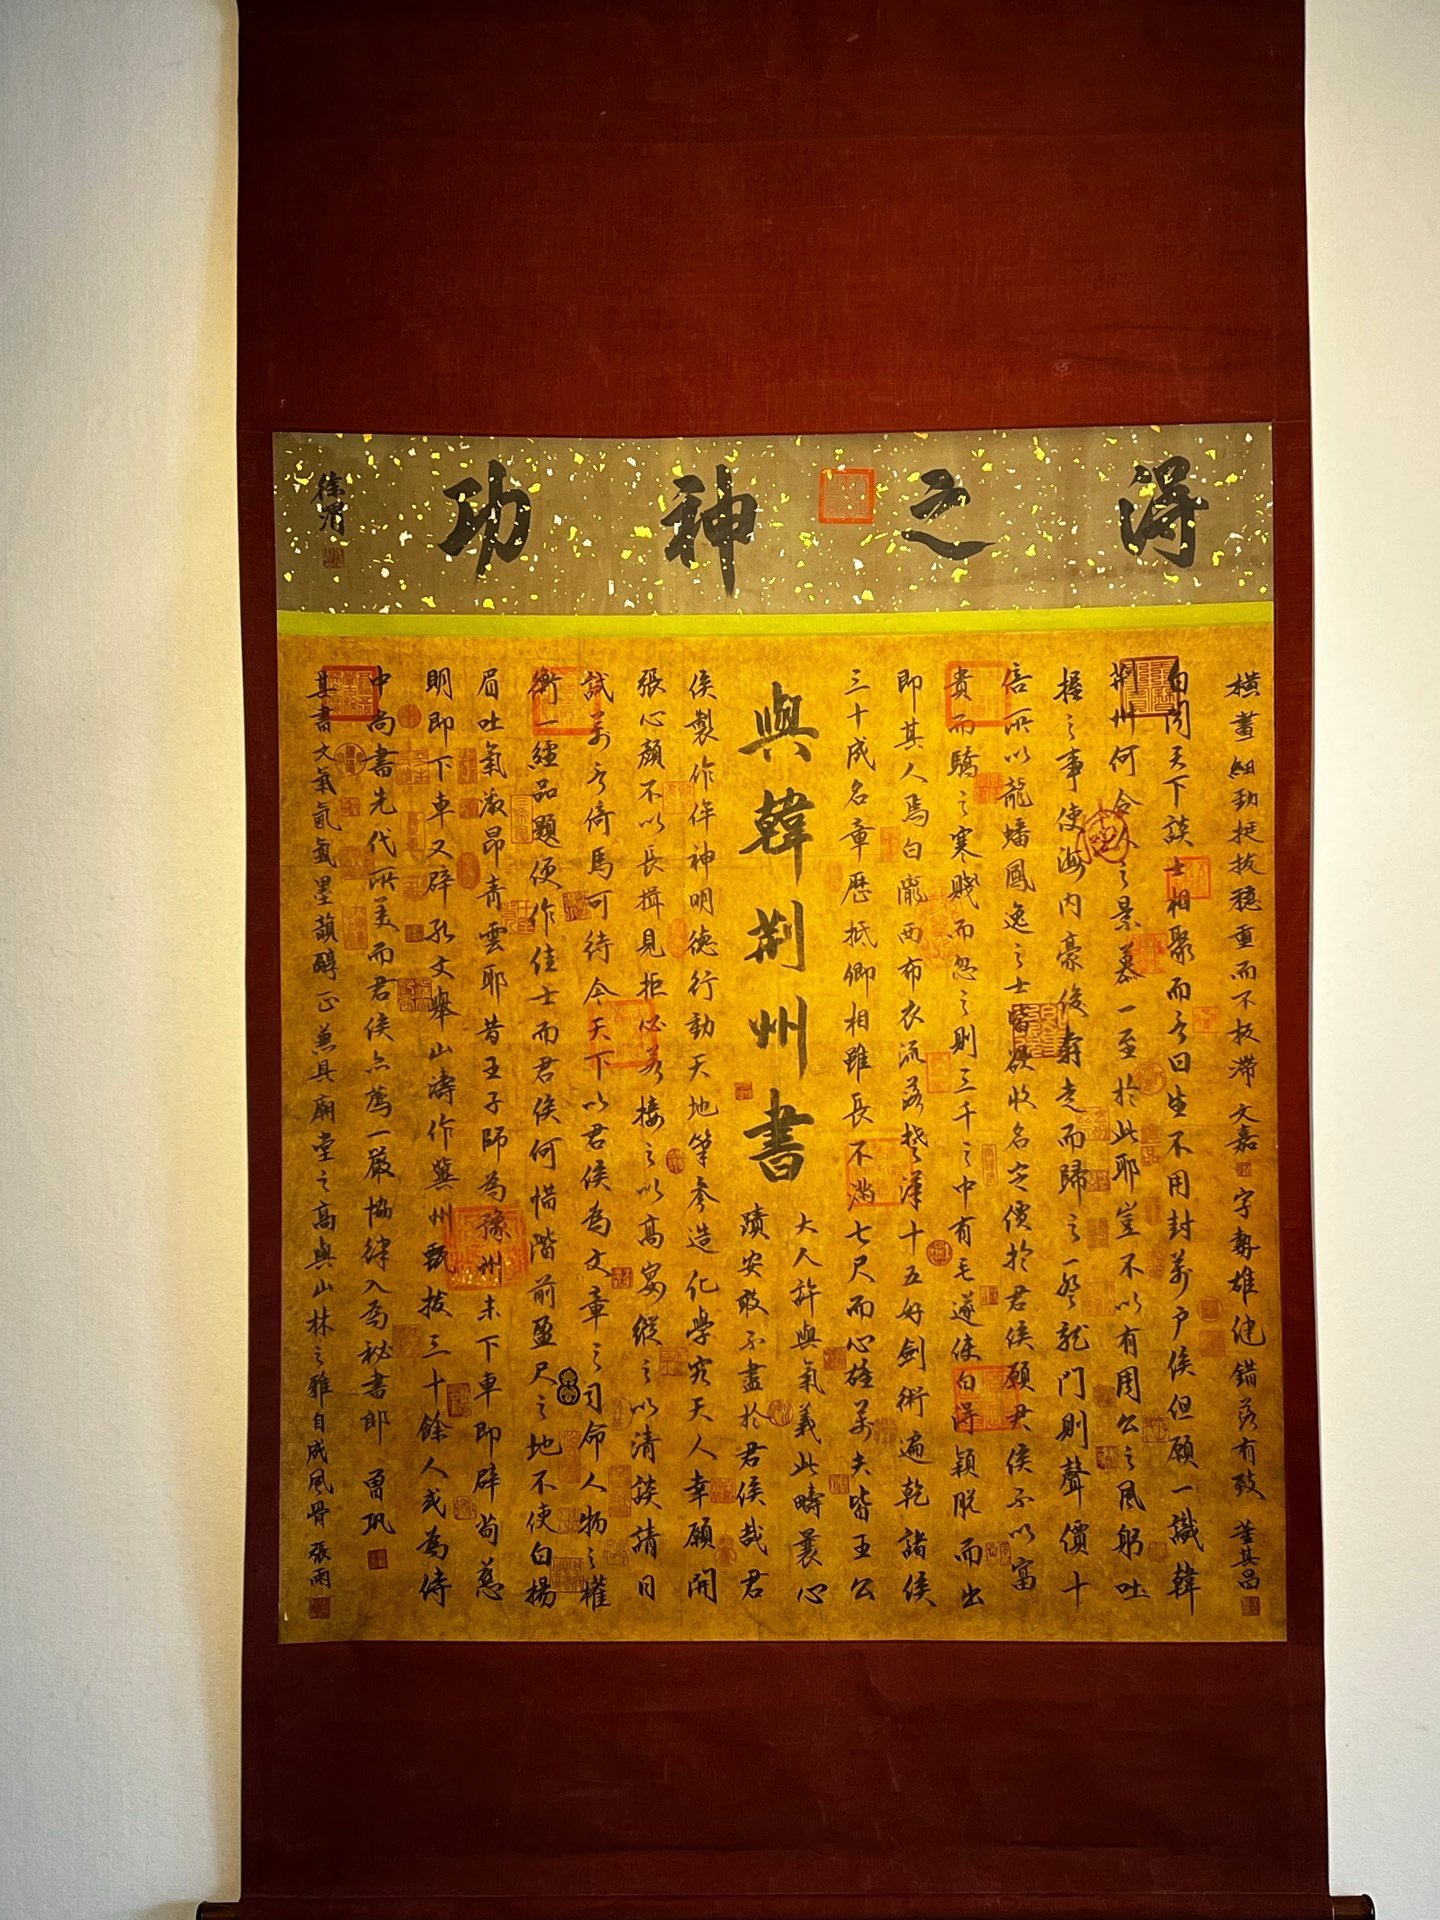 得之神功
徐渭
橫畫細勁挺拔穩重而不板滯 文嘉 字勢雄健錯落有致 董其昌
白聞天下談士相聚而言曰生不用封萬戶侯但願一識韓
荆州何令人之景慕一至於此耶豈不以有周公之風躬吐
握之事使海內豪俊奔走而歸之一登龍門則聲價十
倍所以龍蟠鳳逸之士皆欲收名定價於君侯願君侯不以富
貴而驕之寒賤而忽之則三千之中有毛遂使白得穎脫而出
即其人焉白隴西布衣流落楚漢十五好劍術遍乾諸侯
三十成名章歷抵卿相雖長不滿七尺而心雄萬夫皆王公
與韓荆州書
大人許與氣義此疇曩心
蹟安敢不盡於君侯哉君
侯製作侔神明德行動天地筆參造化學究天人幸願開
張心顏不以長揖見拒必若接之以高宴縱之以清談請日
試萬言倚馬可待今天下以君侯為文章之司命人物之權
衡一經品題便作佳士而君侯何惜階前盈尺之地不使白揚
眉吐氣激昂青雲耶昔王子師為豫州未下車即辟荀慈
明即下車又辟孔文舉山濤作冀州甄拔三十餘人或為侍
中尚書先代所美而君侯亦薦一嚴協律入為秘書郎 曾巩
其書文氣氤氳墨韻醇正兼具廟堂之高與山林之雅自成風骨 張雨